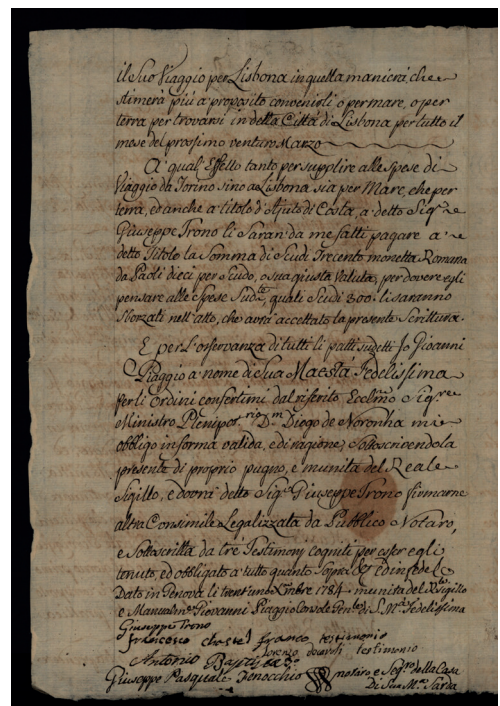 il Suo Viaggio per Lisbona in quella maniera che
stimerà più a proposito convenirli o per mare, o per
terra per trovarsi in detta Città di Lisbona per tutto il
mese del prossimo venturo Marzo
A qual' Effetto tanto per supplire alle Spese di
Viaggio da Torino sino a Lisbona sia per Mare, che per
terra, ed anche a titolo d'Ajuto di Costa, a detto Sig.re
Giuseppe Trono li Saran da me fatti pagare a
detto Titolo la Somma di Scudi Trecento monetta Romana
da Paoli dieci per Scudo, o sua giusta Valuta, per dovere egli
pensare alle Spese Sud.te, quali Scudi 300. li saranno
sborzati nell'atto, che avrà accettato la presente Scrittura.
E per L'osservanza di tutti li patti sudetti Jo Gioanni
Piaggio a nome di Sua Maestà Fedelissima
per li Ordini confertimi dal riferito Eccel.mo Sig.re
Ministro Plenipot.rio D.m Diogo de Noronha mi
obbligo in forma valida, e di ragione, Sottoscrivendo la
presente di proprio pugno, e munita del Reale
Sigillo, e dovrà detto Sig.r Giuseppe Trono firmarne
altra Consimile Legalizzata da Pubblico Notaro,
e Sottoscritta da tré Testimonj cogniti per esser egli
tenuto, ed obbligato a tutto quanto Sopra &c ed in fede
Dato in Genova li trent'uno Xmbre 1784. munita del R. Sigillo
e Manual.ne Giovanni Piaggio Console Gen.le di S. M.a Fedelissima
Giuseppe Trono
Francesco franco testimonio
Lorenzo testimonio
Antonio
Giuseppe Pasquale Fenocchio notaro e Seg.ro della Casa
Di Sua M.a Sarda